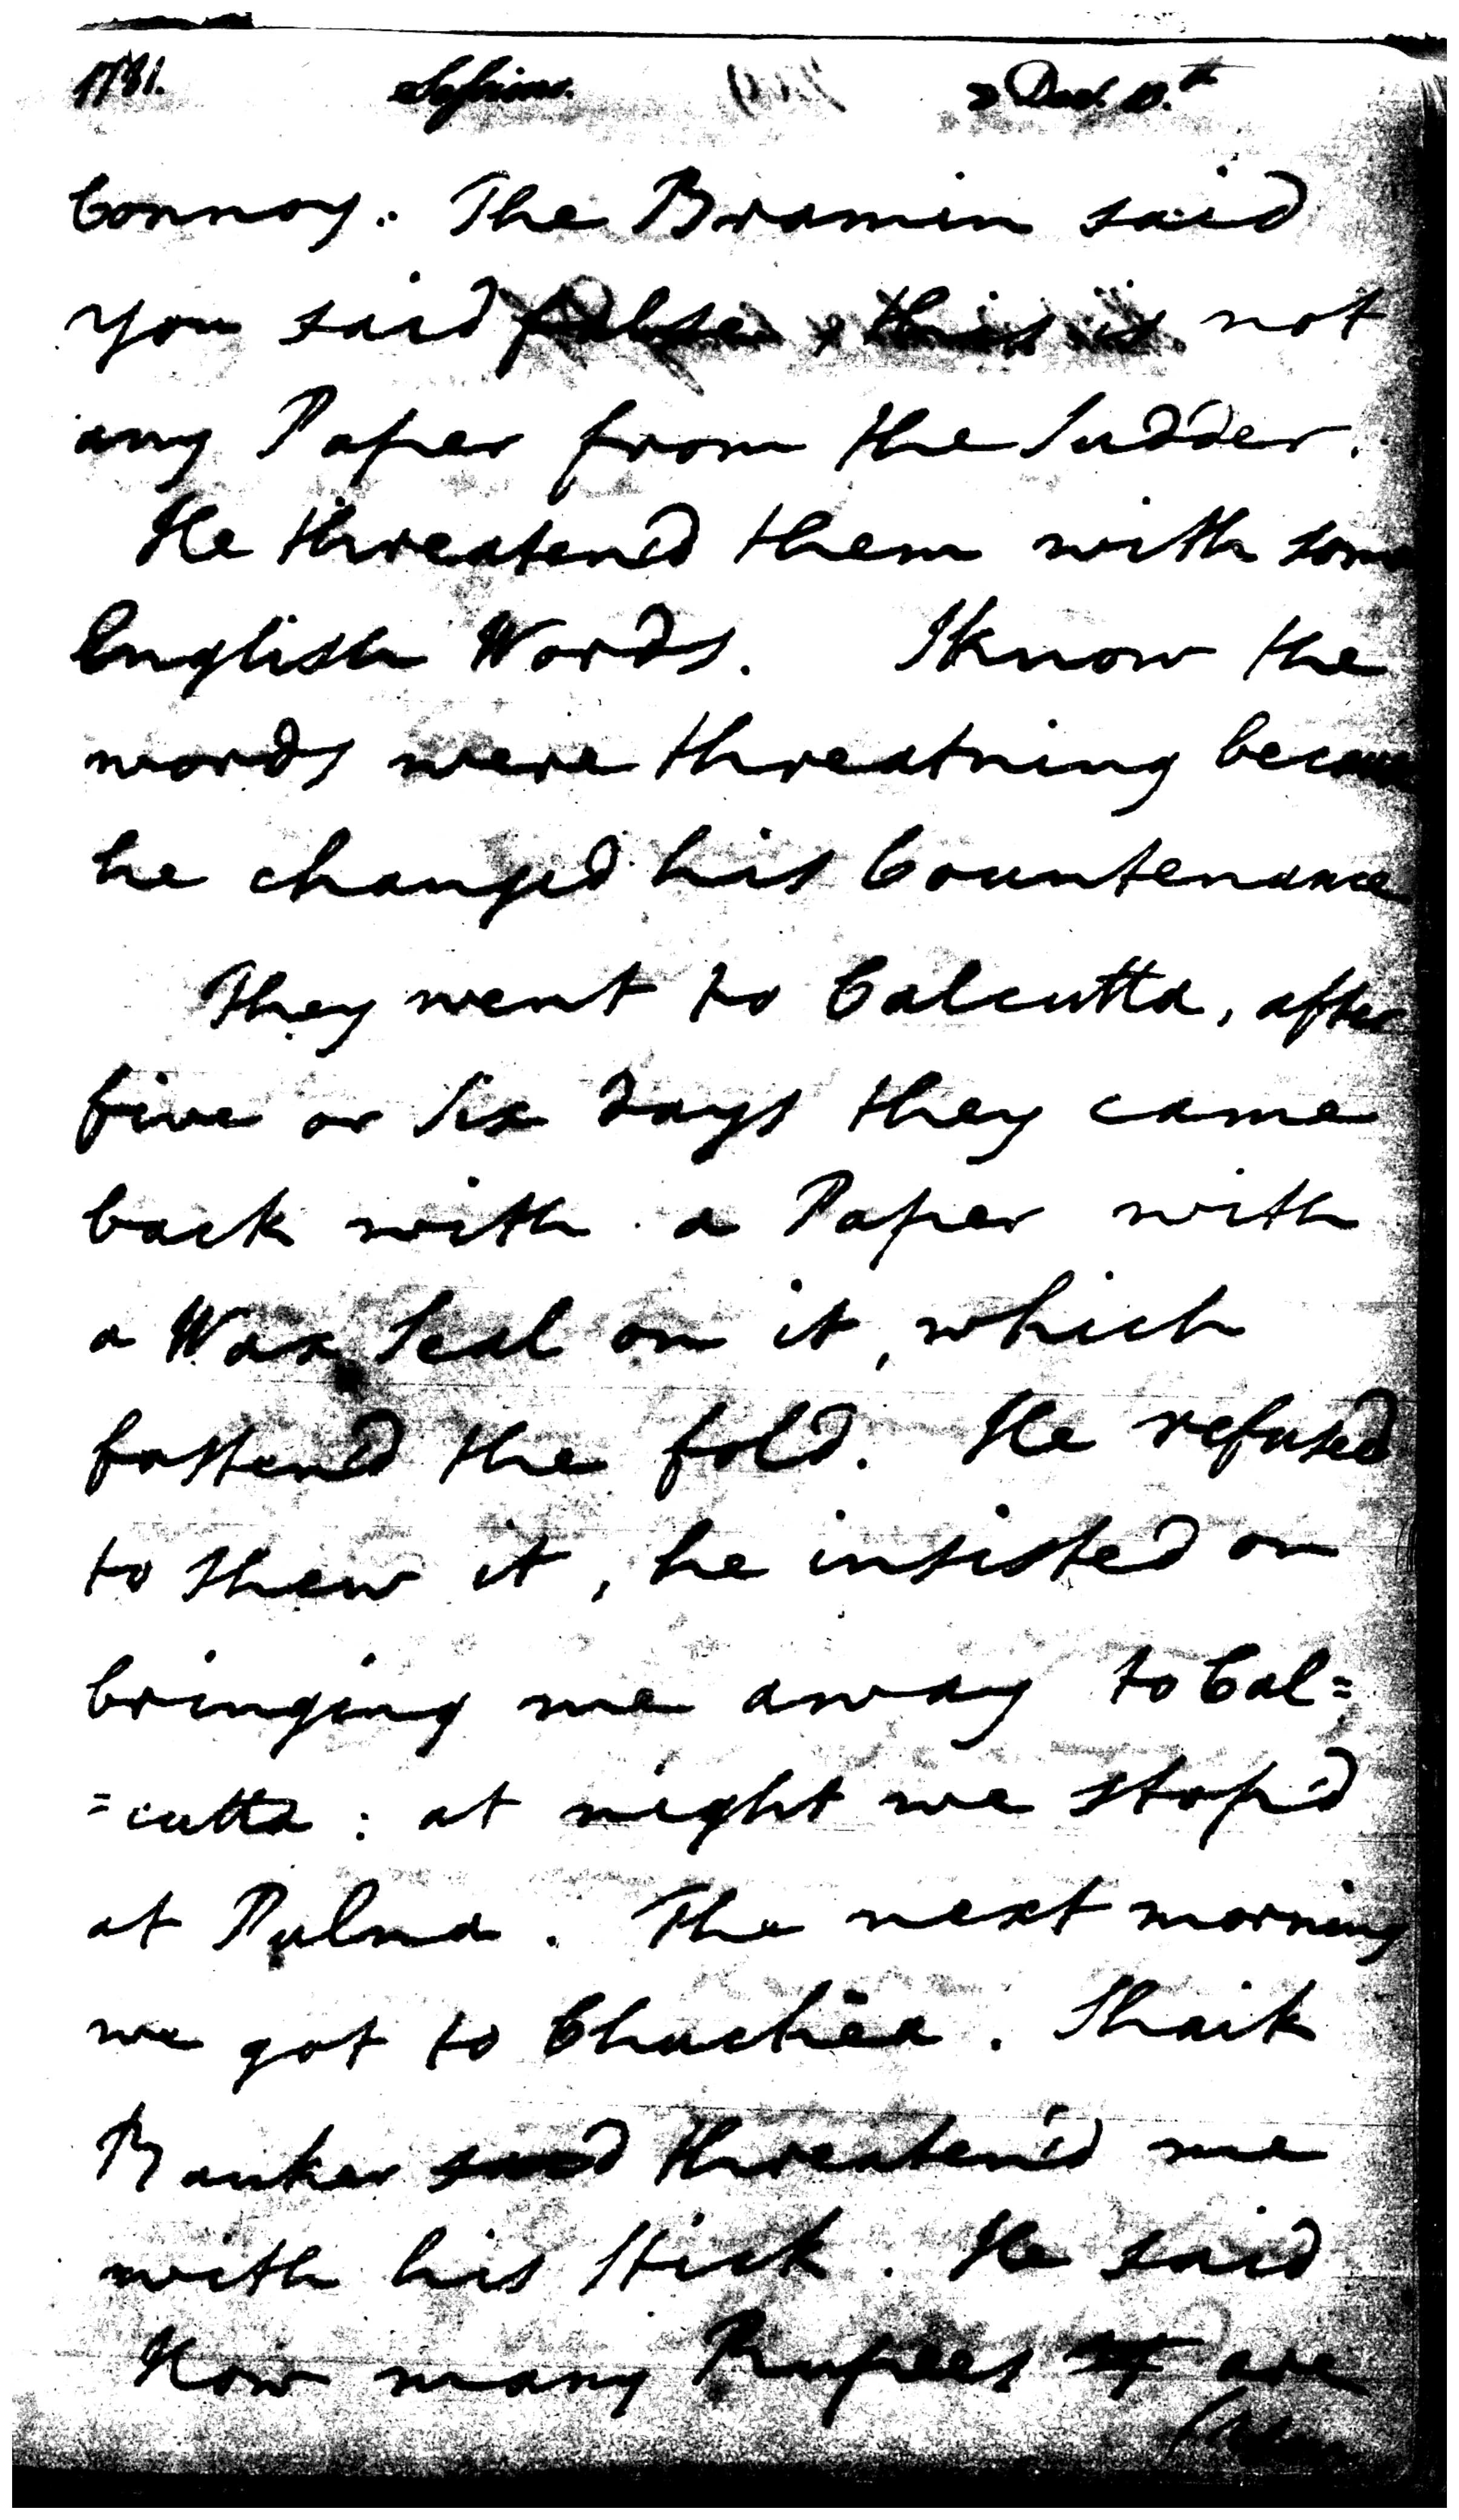 1781. Sessions. Decr. 10.th
Connoy. The Bramin said
you said false, this is not
any Paper from the Sudder.
He threatend them with some
English Words. I know the
words were threatning because
he changed his Countenance
They went to Calcutta, after
five or Six days they came
back with a Paper with
a Wax Seal on it, which
fastend the fold. He refused
to shew it, he insisted on
bringing me away to Cal=
=cutta: at night we stop'd
at Pulna. The next morning
we got to Chuchiea. Shaik
Banker said threaten'd me
with his Stick. He said
How many Rupees are